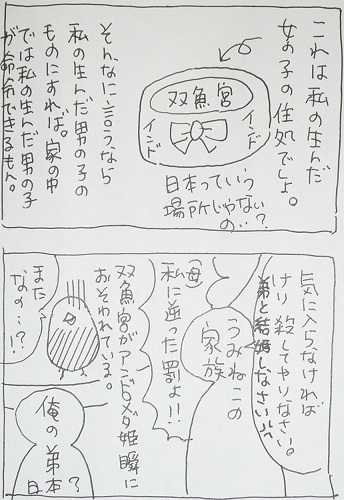 これは私の生んだ
女の子の住処でしょ。
双魚宮
インド
インド
日本っていう
場所じゃない
の…?
そんなに言うなら
私の生んだ男の子の
ものにすれば。家の中
では私の生んだ男の子
が命令できるもん。
気に入らなければ
けり殺してやりなさい。
弟と結婚しなさい
うみねこの
家族
(母)
私に逆った罰よ!!
双魚宮がアンドロメダ姫瞬に
おそわれている。
また
なの…!?
俺の弟?
日本